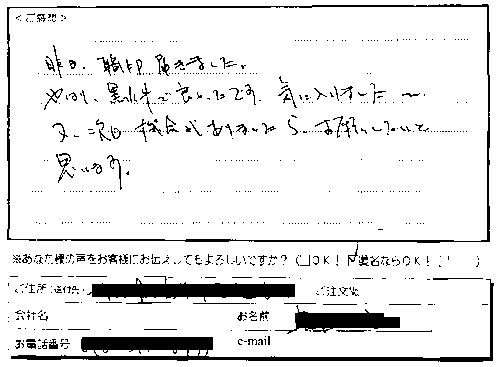 <ご感想>
昨日、職印届きました。
やはり、黒水牛で良かったです。気に入りました〜
又、次回機会がありましたら、お願いしたいと
思います。
※あなた様の声をお客様にお伝えしてもよろしいですか?(□OK! 匿名ならOK!
ご住所(送付先)
ご注文数
会社名
お名前
お電話番号
e-mail